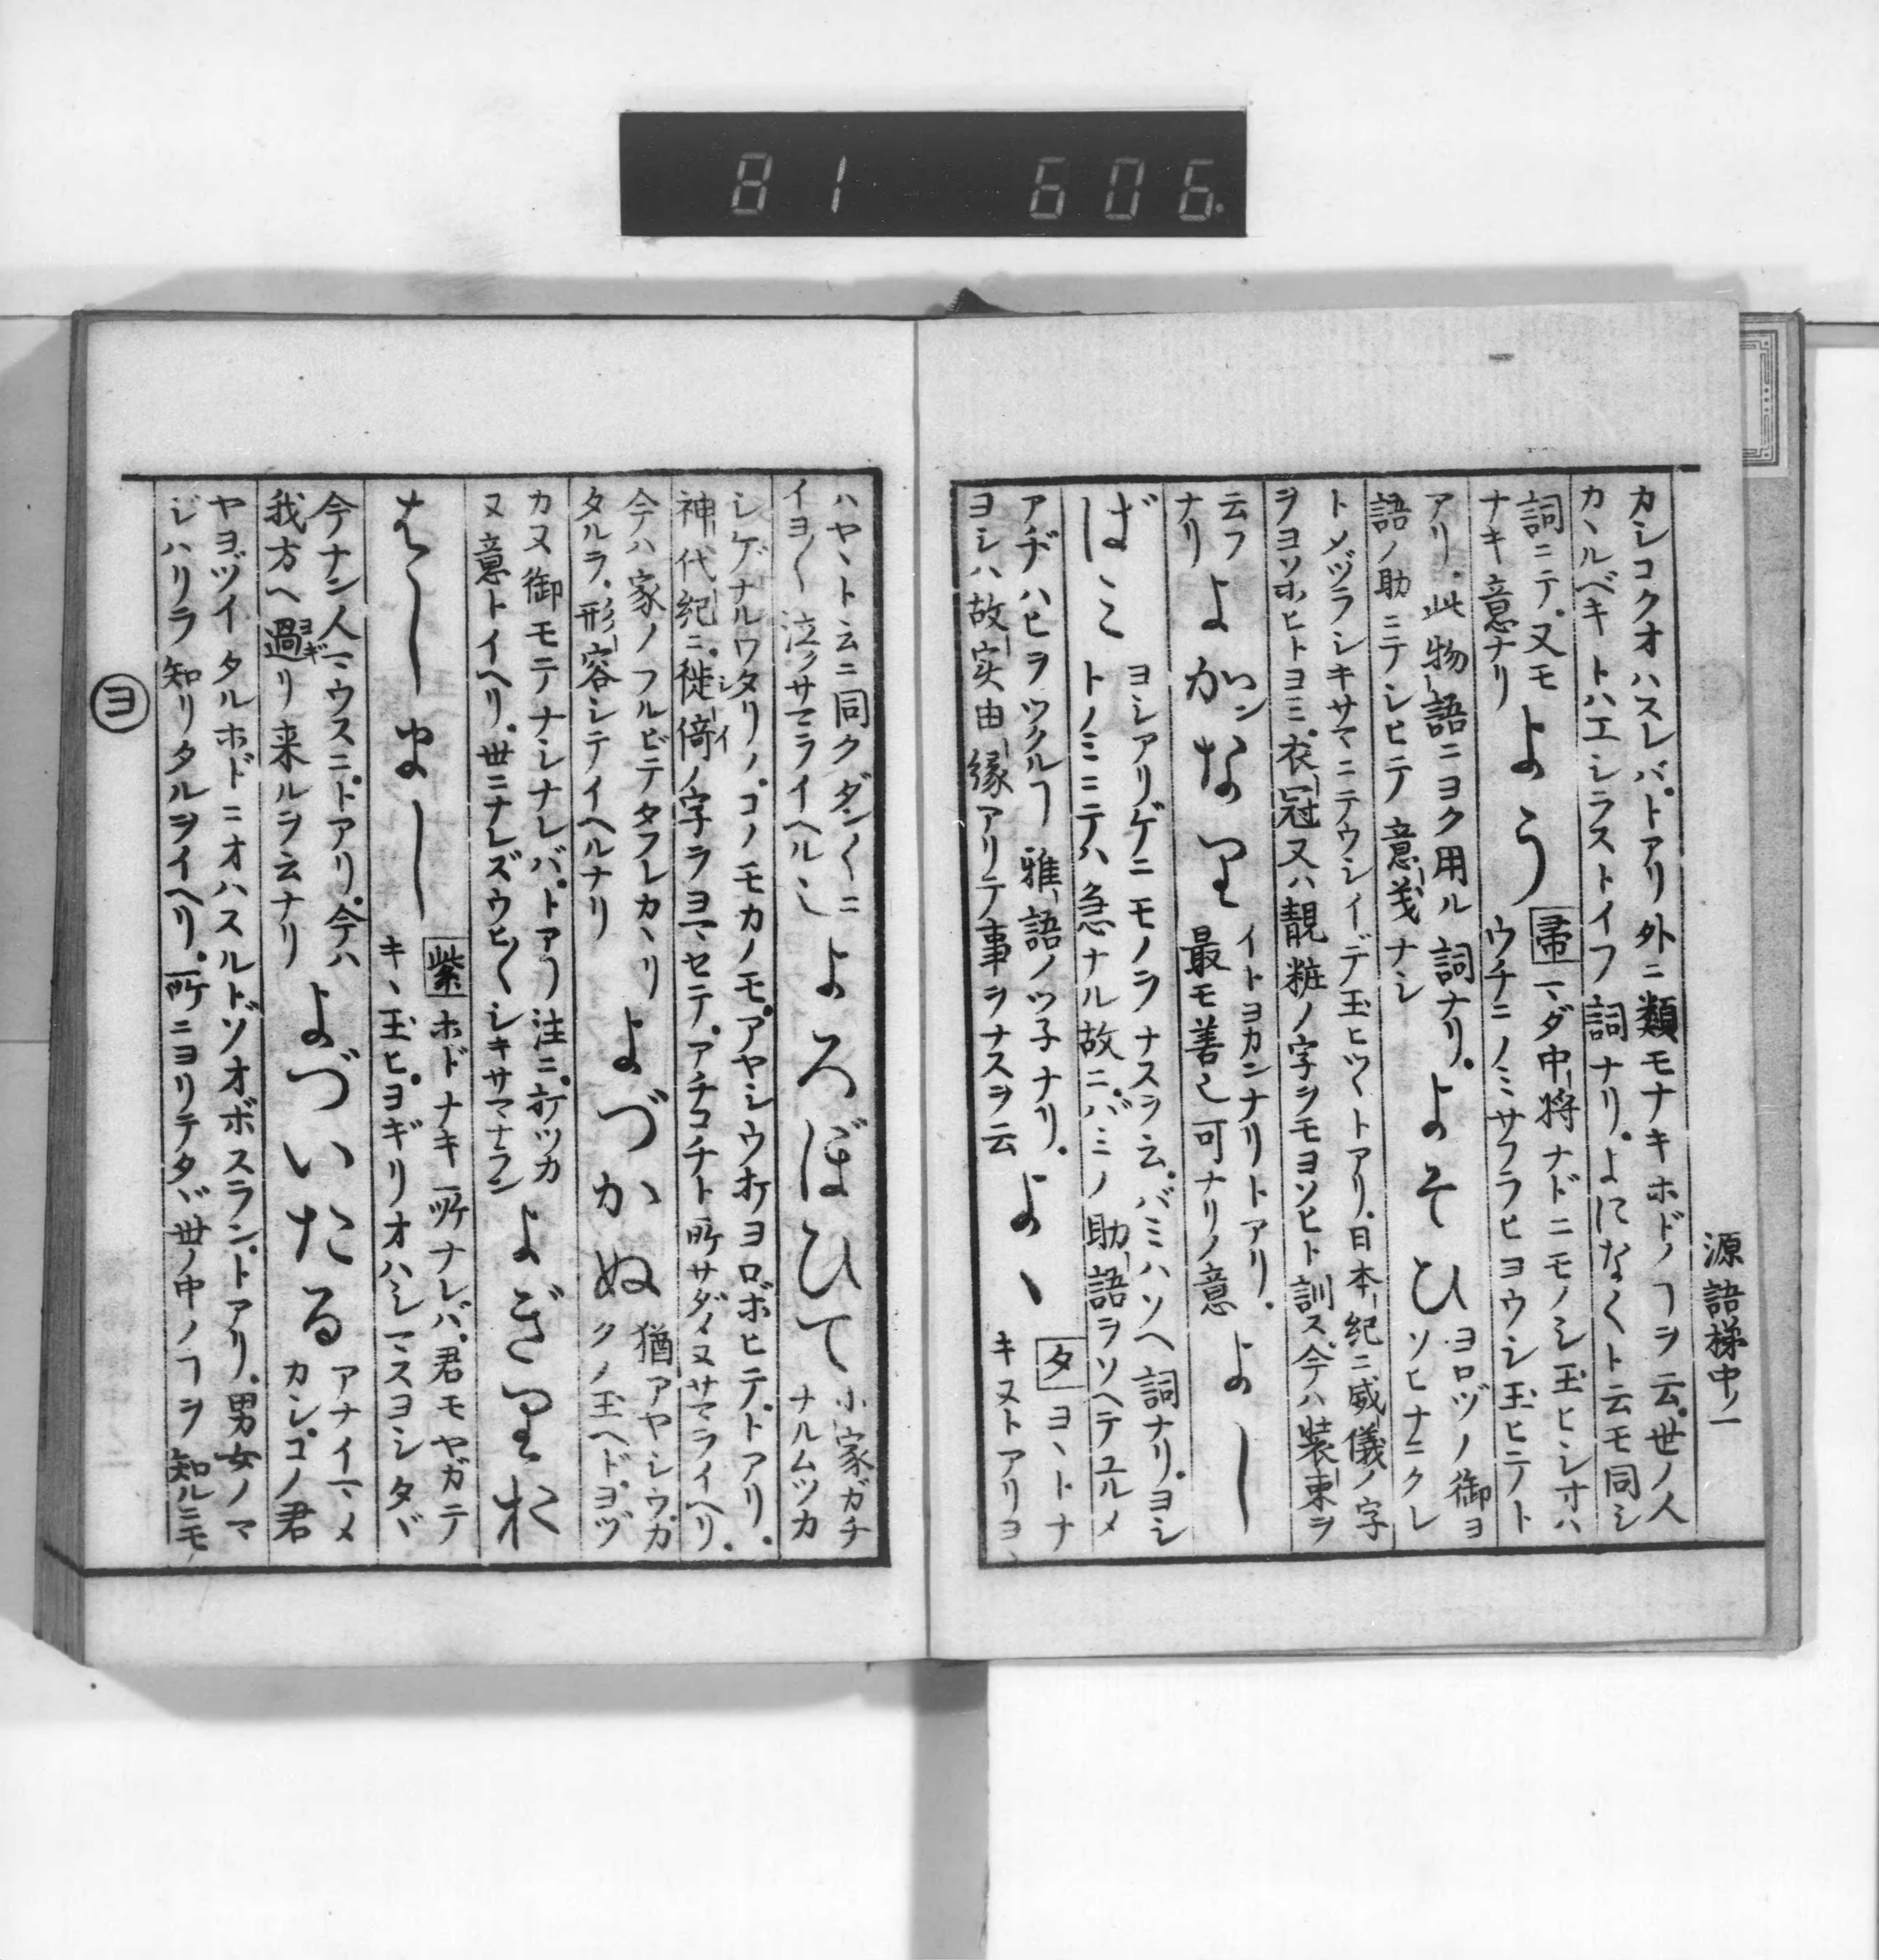 81 606.
源語梯中ノ一
カシコクオハスレバ。トアリ外ニ類モナキホドノヿヲ云。世ノ人
カヽルベキトハエシラストイフ詞ナリ。よになくト云モ同シ
詞ニテ。又モ
ナキ意ナリ
よう
帚マダ中将ナドニモノシ玉ヒシオハ
ウチニノミサフラヒヨウシ玉ヒテト
アリ。此物語ニヨク用ル詞ナリ。
語ノ助ニテシヒテ意義ナシ
よそひ
ヨロヅノ御ヨ
ソヒナニクレ
トメヅラシキサマニテウシイデ玉ヒツヽトアリ。日本紀ニ威儀ノ字
ヲヨソホヒトヨミ。衣冠又ハ靚粧ノ字ヲモヨソヒト訓ス。今ハ装束ヲ
云フ
ナリ
よかンなり
イトヨカンナリトアリ。
最モ善シ可ナリノ意
よし
ばミ
ヨシアリゲニモノヲナスヲ云。バミハソヘ詞ナリ。ヨシ
トノミニテハ急ナル故ニ。バミノ助語ヲソヘテユルメ
アヂハヒヲツクルヿ雅語ノツ子ナリ。
ヨシハ故実由縁アリテ事ヲナスヲ云
よゝ
夕ヨヽトナ
キヌトアリヨヽ
ハヤヽト云ニ同クダン〱ニ
イヨ〱泣クサマヲイヘルシ
よろぼひて
小家ガチ
ナルムツカ
シゲナルワタリノ。コノモカノモ。アヤシウオケヨロボヒテ。トアリ。
神代紀ニ。徙倚シイノ字ヲヨマセテ。アチコチト所サダメヌサマヲイヘリ。
今ハ家ノフルビテタフレカヽリ
タルヲ。形容シテイヘルナリ
よづかぬ
猶アヤシウ。カ
クノ玉ヘド。ヨヅ
カヌ御モテナシナレバ。トアリ注ニ。オケツカ
ヌ意トイヘリ。世ニナレズウヒ〱シキサマナラン
よぎりお
はしまし
紫ホドナキ所ナレバ。君モヤガテ
キヽ玉ヒ。ヨギリオハシマスヨシタヾ
今ナン人マウスニ。トアリ。今ハ
我方ヘ過ヨギリ来ルヲ云ナリ
よづいたる
アナイマメ
カシ。コノ君
ヤヨヅイタルホドニオハスルトゾオボスラン。トアリ。男女ノマ
ジハリヲ知リタルヲイヘリ。所ニヨリテタヾ世ノ中ノヿヲ知ルニモ
ヨ